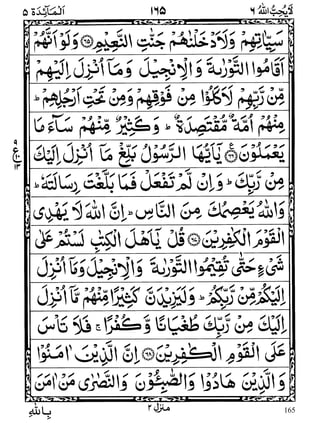 لَا يُحِبُّ اللهُ ٦ ١٦٥ اَلْمَآئِدَة ٥
سَيِّاٰتِهِمْ وَلَاَدْخَلْنٰهُمْ جَنّٰتِ النَّعِيْمِ ﴿٦٥﴾ وَلَوْ اَنَّهُمْ
اَقَامُوا التَّوْرٰىةَ وَالْاِنْجِيْلَ وَمَآ اُنْزِلَ اِلَيْهِمْ
مِّنْ رَّبِّهِمْ لَاَكَلُوْا مِنْ فَوْقِهِمْ وَمِنْ تَحْتِ اَرْجُلِهِمْ ؕ
مِنْهُمْ اُمَّةٌ مُّقْتَصِدَةٌ ؕ وَكَثِيْرٌ مِّنْهُمْ سَآءَ مَا
يَعْمَلُوْنَ ﴿٦٦﴾ يٰۤاَيُّهَا الرَّسُوْلُ بَلِّغْ مَآ اُنْزِلَ اِلَيْكَ
مِنْ رَّبِّكَ ؕ وَاِنْ لَّمْ تَفْعَلْ فَمَا بَلَّغْتَ رِسَالَتَهٗ ؕ
وَاللّٰهُ يَعْصِمُكَ مِنَ النَّاسِ ؕ اِنَّ اللّٰهَ لَا يَهْدِى
الْقَوْمَ الْكٰفِرِيْنَ ﴿٦٧﴾ قُلْ يٰۤاَهْلَ الْكِتٰبِ لَسْتُمْ عَلٰى
شَىْءٍ حَتّٰى تُقِيْمُوا التَّوْرٰىةَ وَالْاِنْجِيْلَ وَمَآ اُنْزِلَ
اِلَيْكُمْ مِّنْ رَّبِّكُمْ ؕ وَلَيَزِيْدَنَّ كَثِيْرًا مِّنْهُمْ مَّآ اُنْزِلَ
اِلَيْكَ مِنْ رَّبِّكَ طُغْيَانًا وَّكُفْرًا ۚ فَلَا تَاْسَ
عَلَى الْقَوْمِ الْكٰفِرِيْنَ ﴿٦٨﴾ اِنَّ الَّذِيْنَ اٰمَنُوْا
وَالَّذِيْنَ هَادُوْا وَالصّٰبِـُٔوْنَ وَالنَّصٰرٰى مَنْ اٰمَنَ
بِاللّٰهِ منزل ٢ 165